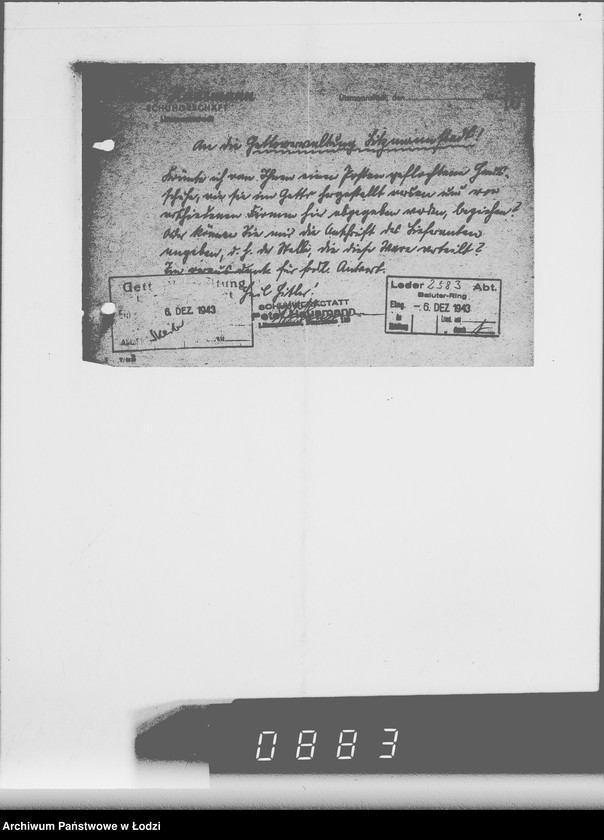 SCHUHGESCHÄFT
Litzmannstadt
Litzmannstadt, den
An die Gettoverwaltung Litzmannstadt!
Könnte ich von Ihnen einen Posten geflochtene Hand-
schuhe, wie sie im Getto hergestellt werden und von
verschiedenen Firmen hier abgegeben werden, beziehen?
Oder können Sie mir die Anschrift des Lieferanten
angeben, d. h. der Stelle, die diese Ware verteilt?
Im voraus danke für frdl. Antwort.
Heil Hitler!
SCHUHWERKSTATT
Peter
Gett tung
6. DEZ. 1943
Leder 2583 Abt.
Baluter-Ring
Eing. - 6. DEZ 1943
0883
Archiwum Państwowe w Łodzi